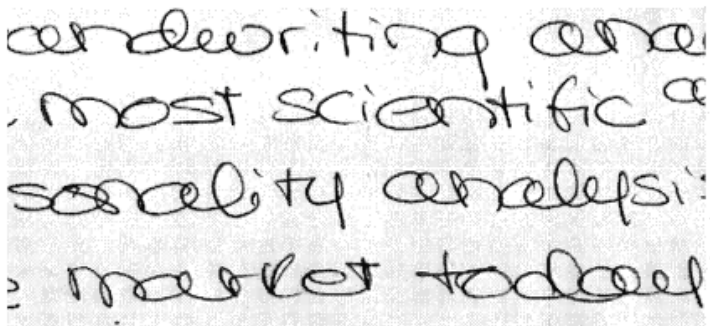 andwriting ana
most scientific a
sonality analysis
market today